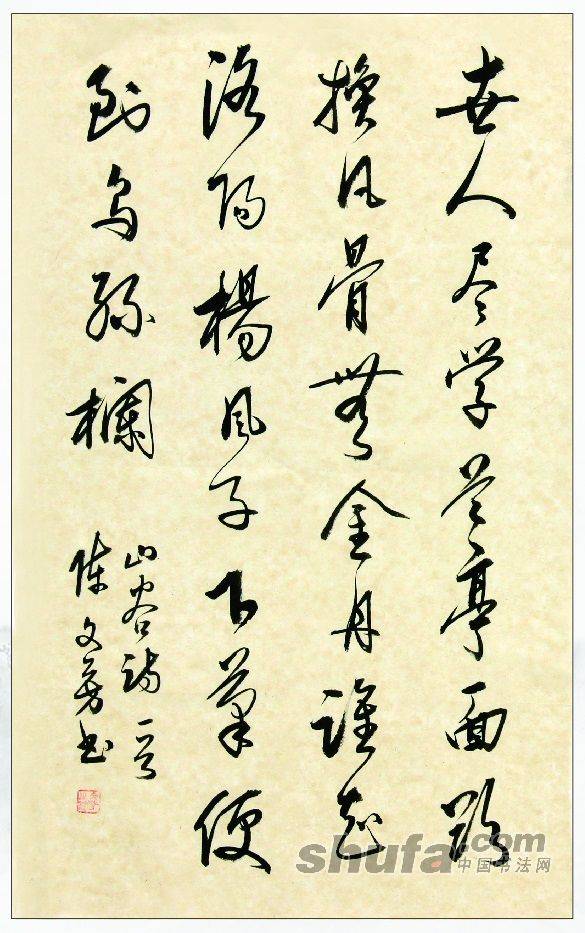 世人尽学兰亭面欲
换凡骨無金丹谁知
洛阳楊风子下筆便
到乌丝欄
山谷诗一首
陈文芳书
shufa.com
中国书法网